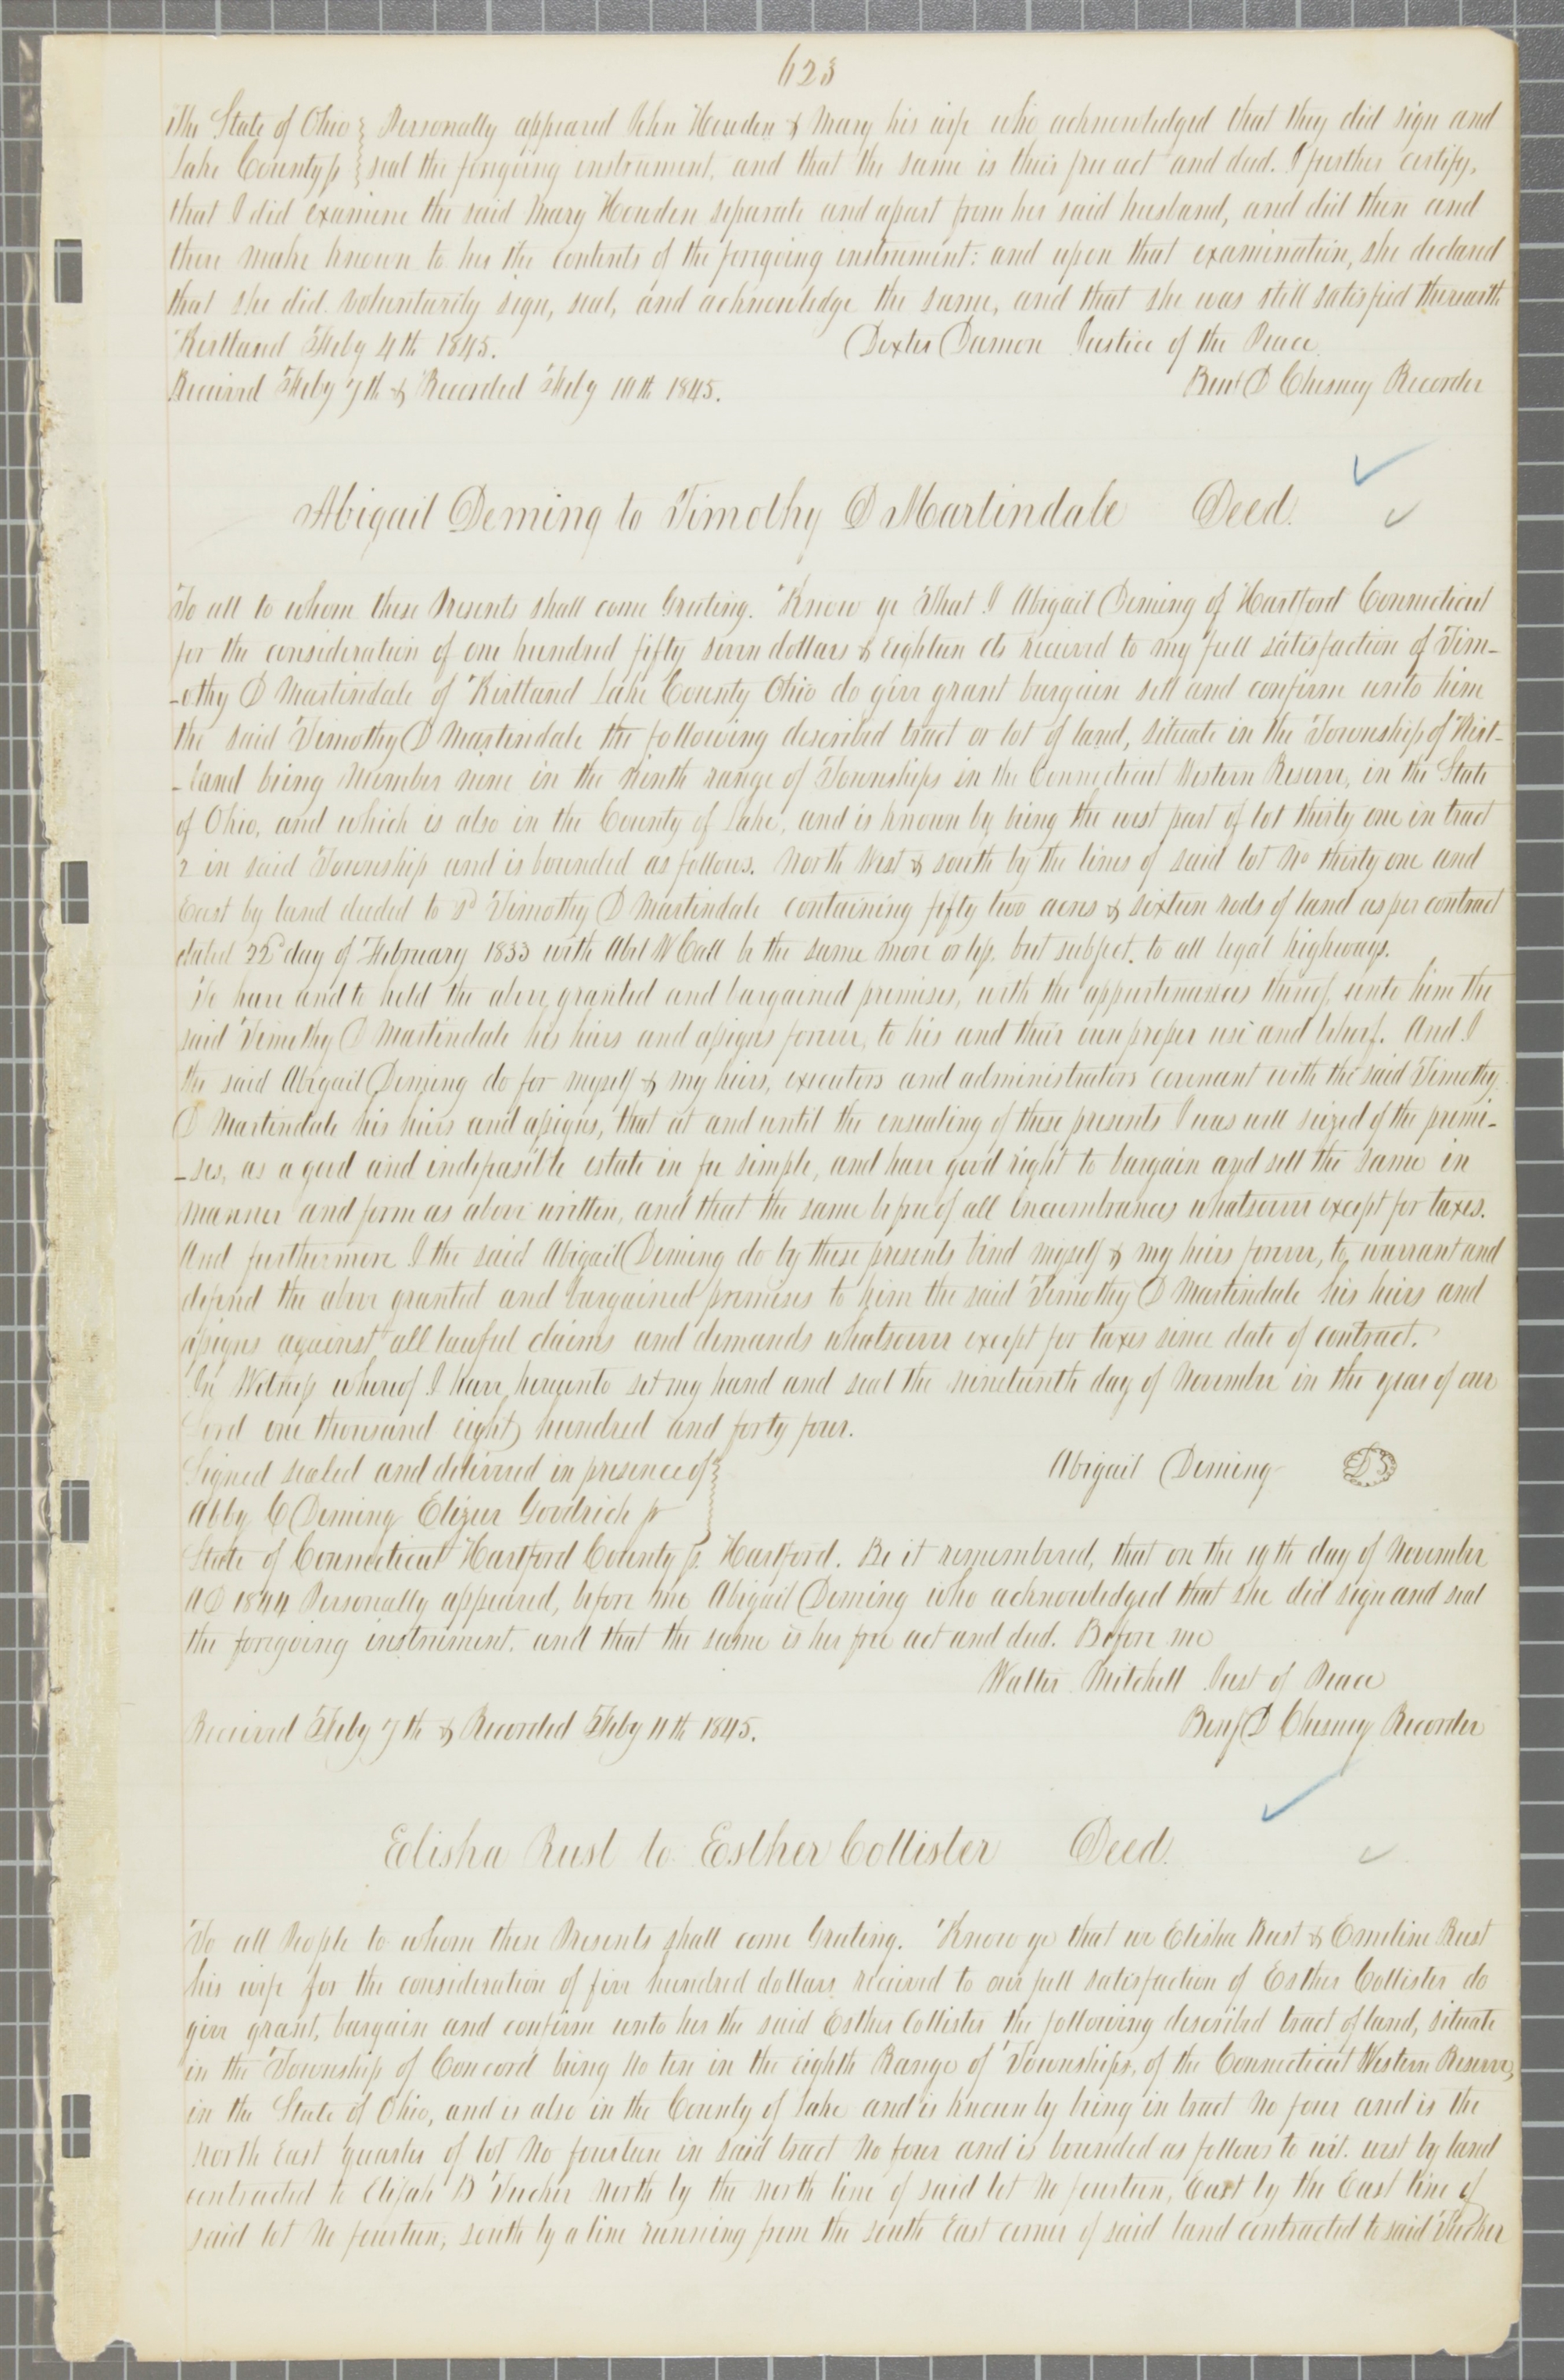 623
The State of Ohio } Personally appeared John Howden & Mary his wife who acknowledged that they did sign and
Lake County ss } seal the foregoing instrument, and that the same is their free act and deed. I further certify,
that I did examine the said Mary Howden separate and apart from her said husband, and did then and
there make known to her the contents of the foregoing instrument: and upon that examination, she declared
that she did voluntarily sign, seal, and acknowledge the same, and that she was still satisfied therewith
Kirtland Feby 4th 1845. Dexter Damon Justice of the Peace
Received Feby 7th & Recorded Feby 10th 1845. Benj D Chesney Recorder
Abigail Deming to Timothy D Martindale Deed.
To all to whom these Presents shall come Greeting. Know ye That I Abigail Deming of Hartford Connecticut
for the consideration of one hundred fifty seven dollars & eighteen cts received to my full satisfaction of Tim-
-othy D Martindale of Kirtland Lake County Ohio do give grant bargain sell and confirm unto him
the said Timothy D Martindale the following described tract or lot of land, situate in the Township of Kirt-
-land being Number nine in the ninth range of Townships in the Connecticut Western Reserve, in the State
of Ohio, and which is also in the County of Lake, and is known by being the west part of lot thirty one in tract
2 in said Township and is bounded as follows. North West & south by the lines of said lot No thirty one and
East by land deeded to sd Timothy D Martindale containing fifty two acres & sixteen rods of land as per contract
dated 22d day of February 1833 with Abel W Call be the same more or less. but subject. to all legal highways.
To have and to hold the above granted and bargained premises, with the appurtenances thereof, unto him the
said Timothy D Martindale his heirs and assigns forever, to his and their own proper use and behoof. And I
the said Abigail Deming do for myself & my heirs, executors and administrators covenant with the said Timothy
D Martindale his heirs and assigns, that at and until the ensealing of these presents I was well seized of the premi-
-ses, as a good and indefeasible estate in fee simple, and have good right to bargain and sell the same in
manner and form as above written, and that the same be free of all incumbrances whatsoever except for taxes.
And furthermore I the said Abigail Deming do by these presents bind myself & my heirs forever, to warrant and
defend the above granted and bargained premises to him the said Timothy D Martindale his heirs and
assigns against all lawful claims and demands whatsoever except for taxes since date of contract.
In Witness whereof I have hereunto set my hand and seal the nineteenth day of November in the year of our
Lord one thousand eight hundred and forty four.
Signed sealed and delivered in presence of } Abigail Deming LS
Abby C Deming Elizur Goodrich jr
State of Connecticut Hartford County ss. Hartford. Be it remembered, that on the 19th day of November
AD 1844 Personally appeared, before me Abigail Deming who acknowledged that she did sign and seal
the foregoing instrument. and that the same is her free act and deed. Before me
Walter Mitchell Just of Peace
Received Feby 7th & Recorded Feby 11th 1845. Benj D Chesney Recorder
Elisha Rust to Esther Collister Deed.
To all People to whom these Presents shall come Greeting. Know ye that we Elisha Rust & Emeline Rust
his wife for the consideration of five hundred dollars received to our full satisfaction of Esther Collister do
give grant, bargain and confirm unto her the said Esther Collister the following described tract of land, situate
in the Township of Concord being No ten in the eighth Range of Townships, of the Connecticut Western Reserve,
in the State of Ohio, and is also in the County of Lake and is known by being in tract No four and is the
North East quarter of lot No fourteen in said tract No four and is bounded as follows to wit. west by land
contracted to Elijah B Tucker North by the north line of said lot No fourteen, East by the East line of
said lot No fourteen, south by a line running from the south East corner of said land contracted to said Tucker